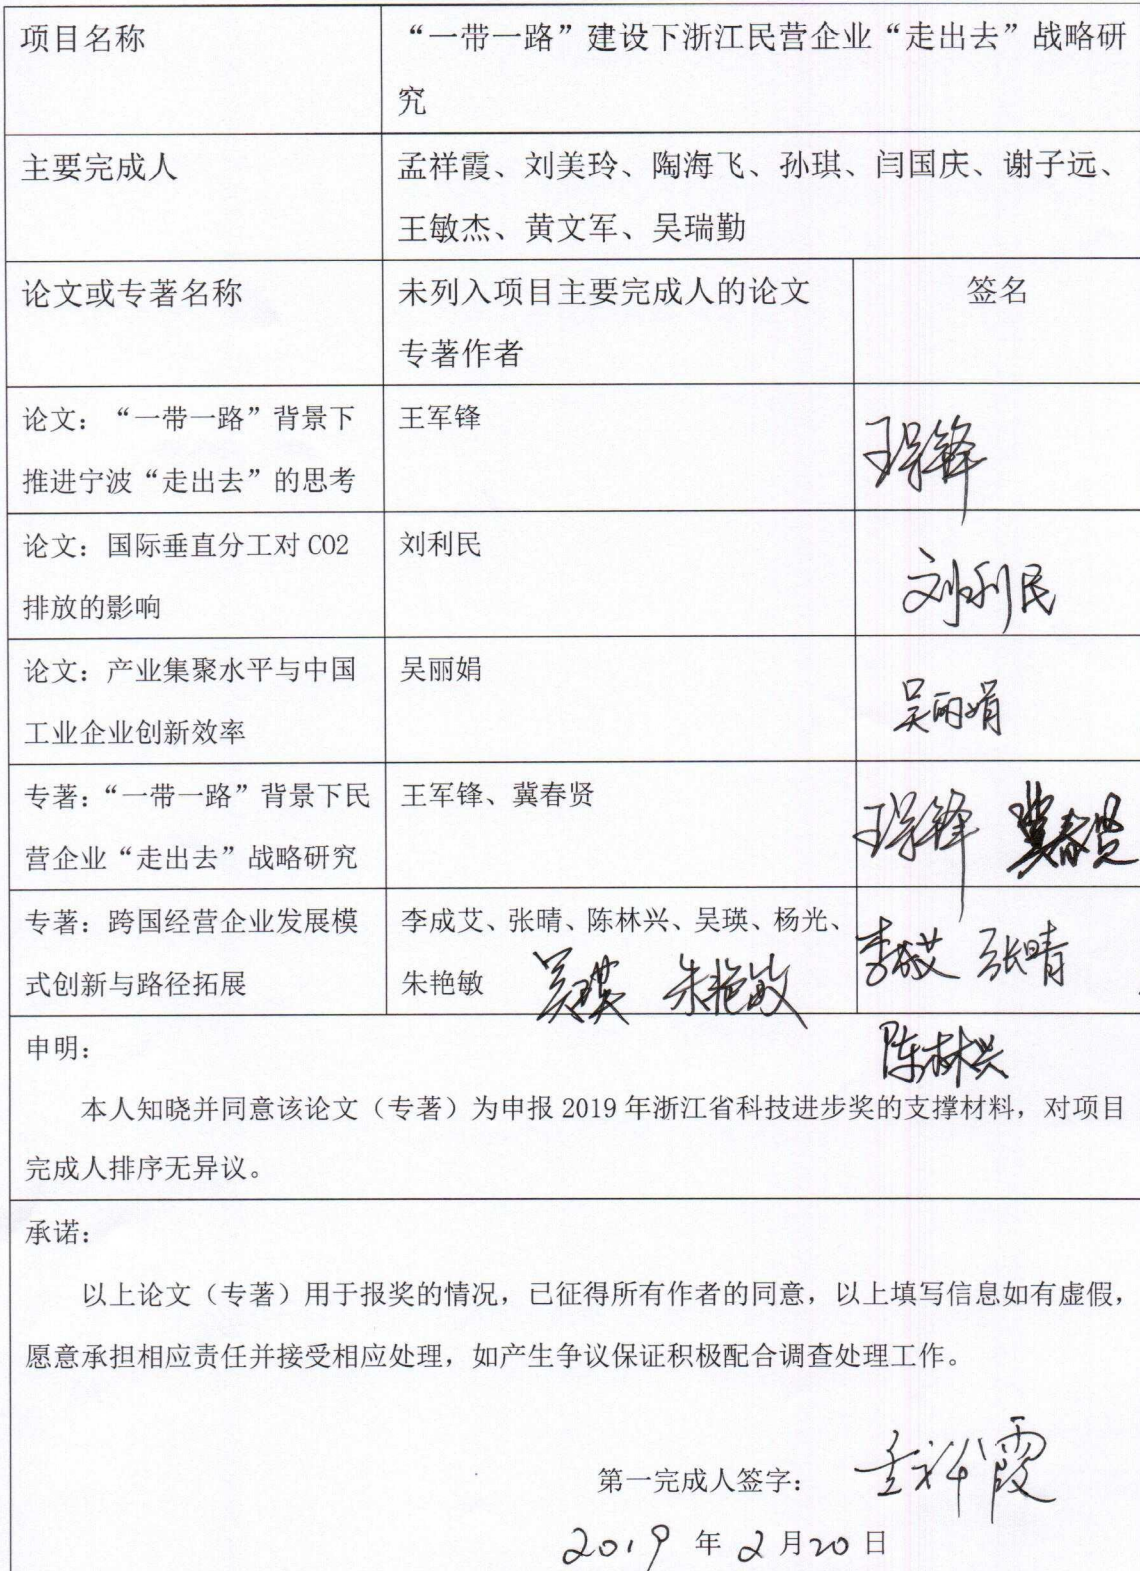 项目名称
“一带一路”建设下浙江民营企业“走出去”战略研
究
主要完成人
孟祥霞、刘美玲、陶海飞、孙琪、闫国庆、谢子远、
王敏杰、黄文军、吴瑞勤
论文或专著名称
未列入项目主要完成人的论文
专著作者
签名
论文：“一带一路”背景下
推进宁波“走出去”的思考
王军锋
王军锋
论文：国际垂直分工对 CO2
排放的影响
刘利民
刘利民
论文：产业集聚水平与中国
工业企业创新效率
吴丽娟
吴丽娟
专著：“一带一路”背景下民
营企业“走出去”战略研究
王军锋、冀春贤
王军锋 冀春贤
专著：跨国经营企业发展模
式创新与路径拓展
李成艾、张晴、陈林兴、吴瑛、杨光、
朱艳敏
吴瑛 朱艳敏
李成艾 张晴
陈林兴
申明：
本人知晓并同意该论文（专著）为申报 2019 年浙江省科技进步奖的支撑材料，对项目
完成人排序无异议。
承诺：
以上论文（专著）用于报奖的情况，已征得所有作者的同意，以上填写信息如有虚假，
愿意承担相应责任并接受相应处理，如产生争议保证积极配合调查处理工作。
第一完成人签字： 孟祥霞
2019 年 2 月 20 日